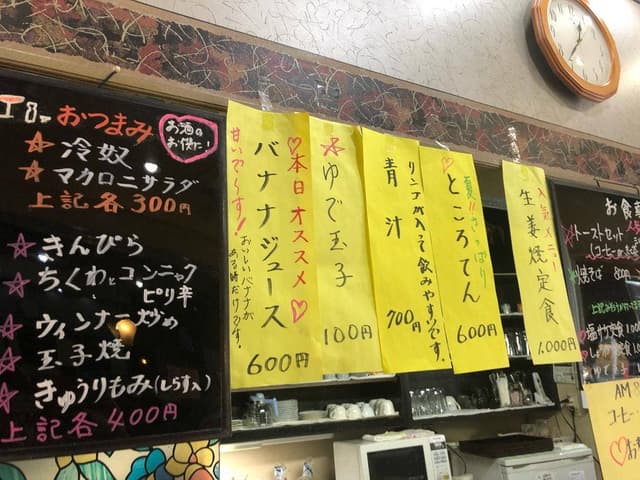 おつまみ
お酒の
お供に!
☆冷奴
☆マカロニサラダ
上記各300円
☆きんぴら
☆ちくわとコンニャク
ピリ辛
☆ウィンナー炒め
☆玉子焼
☆きゅうりもみ(しらす入)
上記各400円
♡本日オススメ♡
バナナジュース
甘いで〜す!
おいしいバナナが
ある時だけです。
600円
ゆで玉子
100円
青汁
リンゴが入って飲みやすいです。
700円
夏!!さっぱり
♡ところてん
600円
人気メニュー
生姜焼定食
1.000円
お食
トーストセット
焼そば 800円
AM
コーヒー